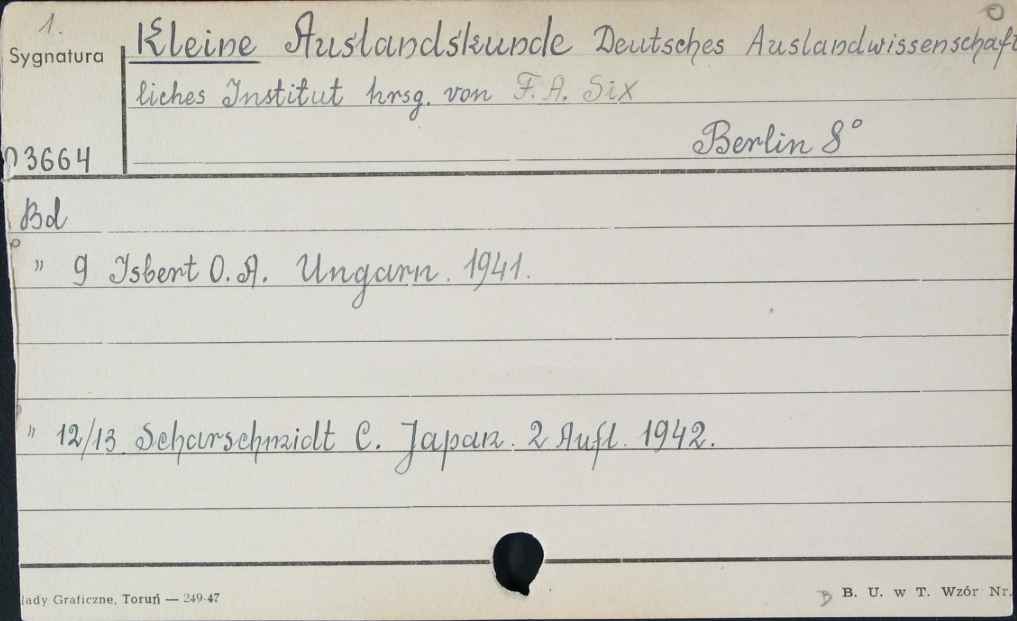 1.
Sygnatura
Kleine Auslandskunde Deutsches Auslandwissenschaft
liches Institut hrsg. von F. A. Six
Berlin 8°
03664
Bd
" 9 Isbert O. A. Ungarn. 1941.
" 12/13 Scharschmidt C. Japan. 2 Aufl. 1942.
łady Graficzne, Toruń — 249-47
B. U. w T. Wzór Nr.